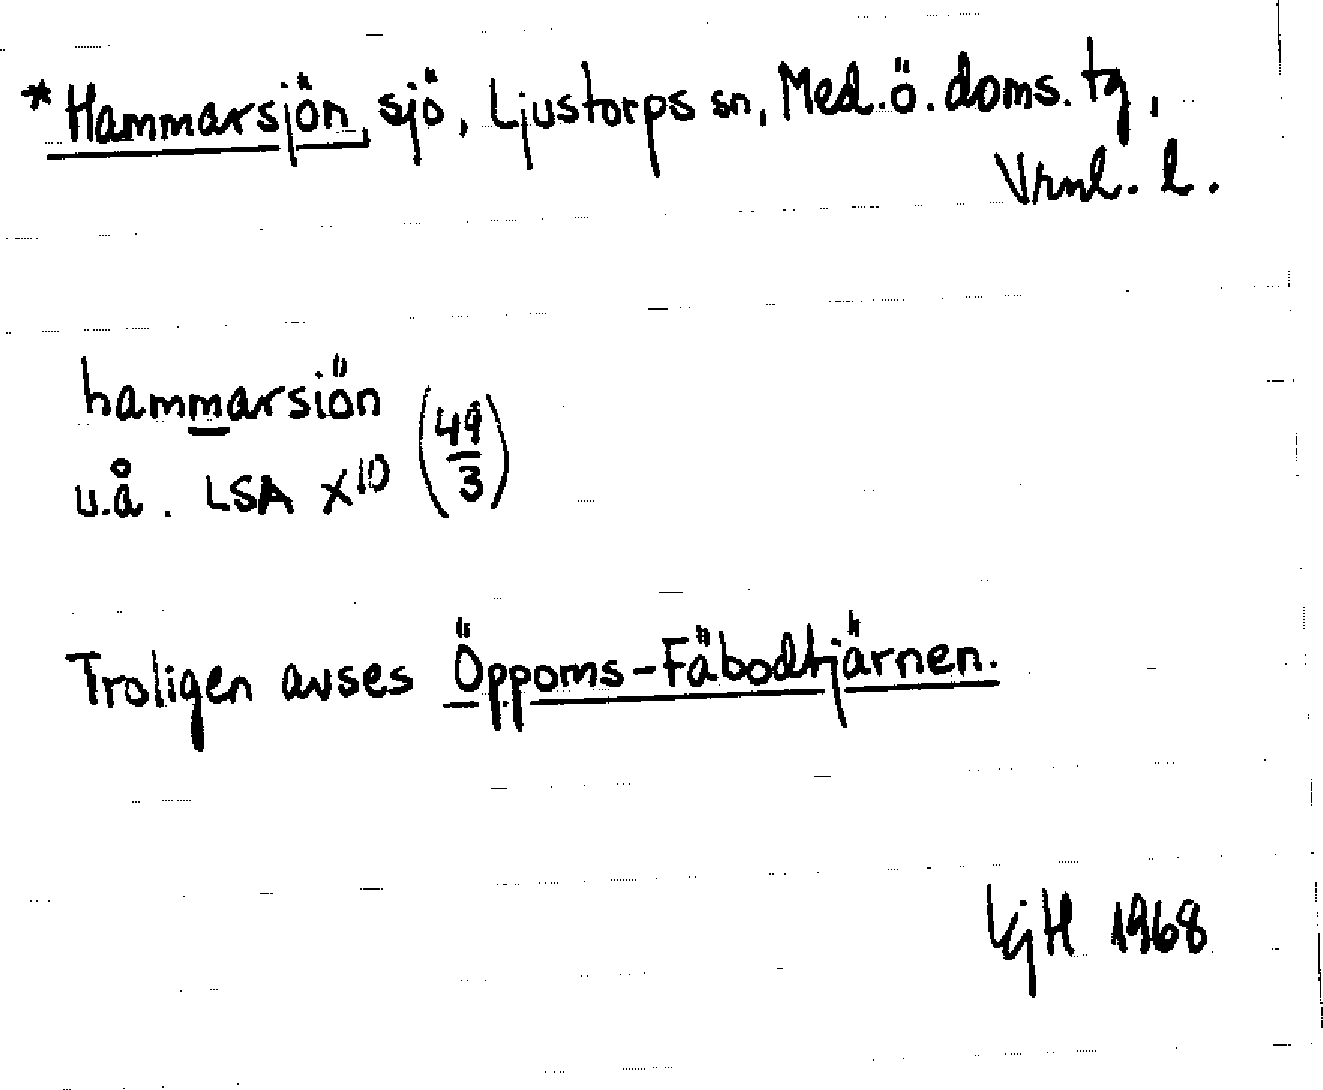 *Hammarsjön, sjö, Ljustorps sn, Med.ö.doms.tg,
Vrnl. l.
hammarsiön
u.å. LSA X10 (49/3)
Troligen avses Öppoms-Fäbodtjärnen.
LjH 1968